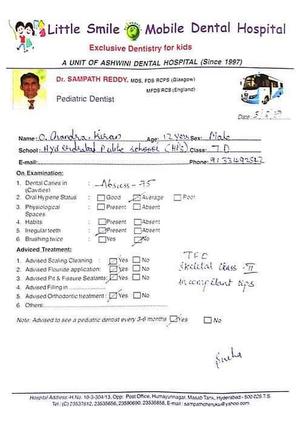 Little Smile Mobile Dental Hospital
Exclusive Dentistry for kids
A UNIT OF ASHWINI DENTAL HOSPITAL (Since 1997)
Dr. SAMPATH REDDY, MDS, FDS RCPS (Glasgow)
MFDS RCS (England)
Pediatric Dentist
Date:
Name: C. Chandra Kiran Age: 12 yrs Sex: Male
School: Hyderabad Public School (HPS) Class: 7 D
E-mail: Phone:
On Examination:
1. Dental Caries in (Cavities) : Abscess - 75
2. Oral Hygiene Status : Good Average Poor
3. Physiological Spaces : Present Absent
4. Habits : Present Absent
5. Irregular teeth : Present Absent
6. Brushing twice : Yes No
Adviced Treatment:
1. Advised Scaling Cleaning : Yes No
2. Advised Flouride application: Yes No
3. Advised Pit & Fissure Sealants: Yes No
4. Advised Filling in
5. Advised Orthodontic treatment : Yes No
6. Others:
TEC
Skeletal class - II
Incompetent lips
Note: Advised to see a pediatric dentist every 3-6 months Yes No
Hospital Address: H.No. 10-3-304/13, Opp. Post Office, Humayunnagar, Masab Tank, Hyderabad - 500 028 T.S.